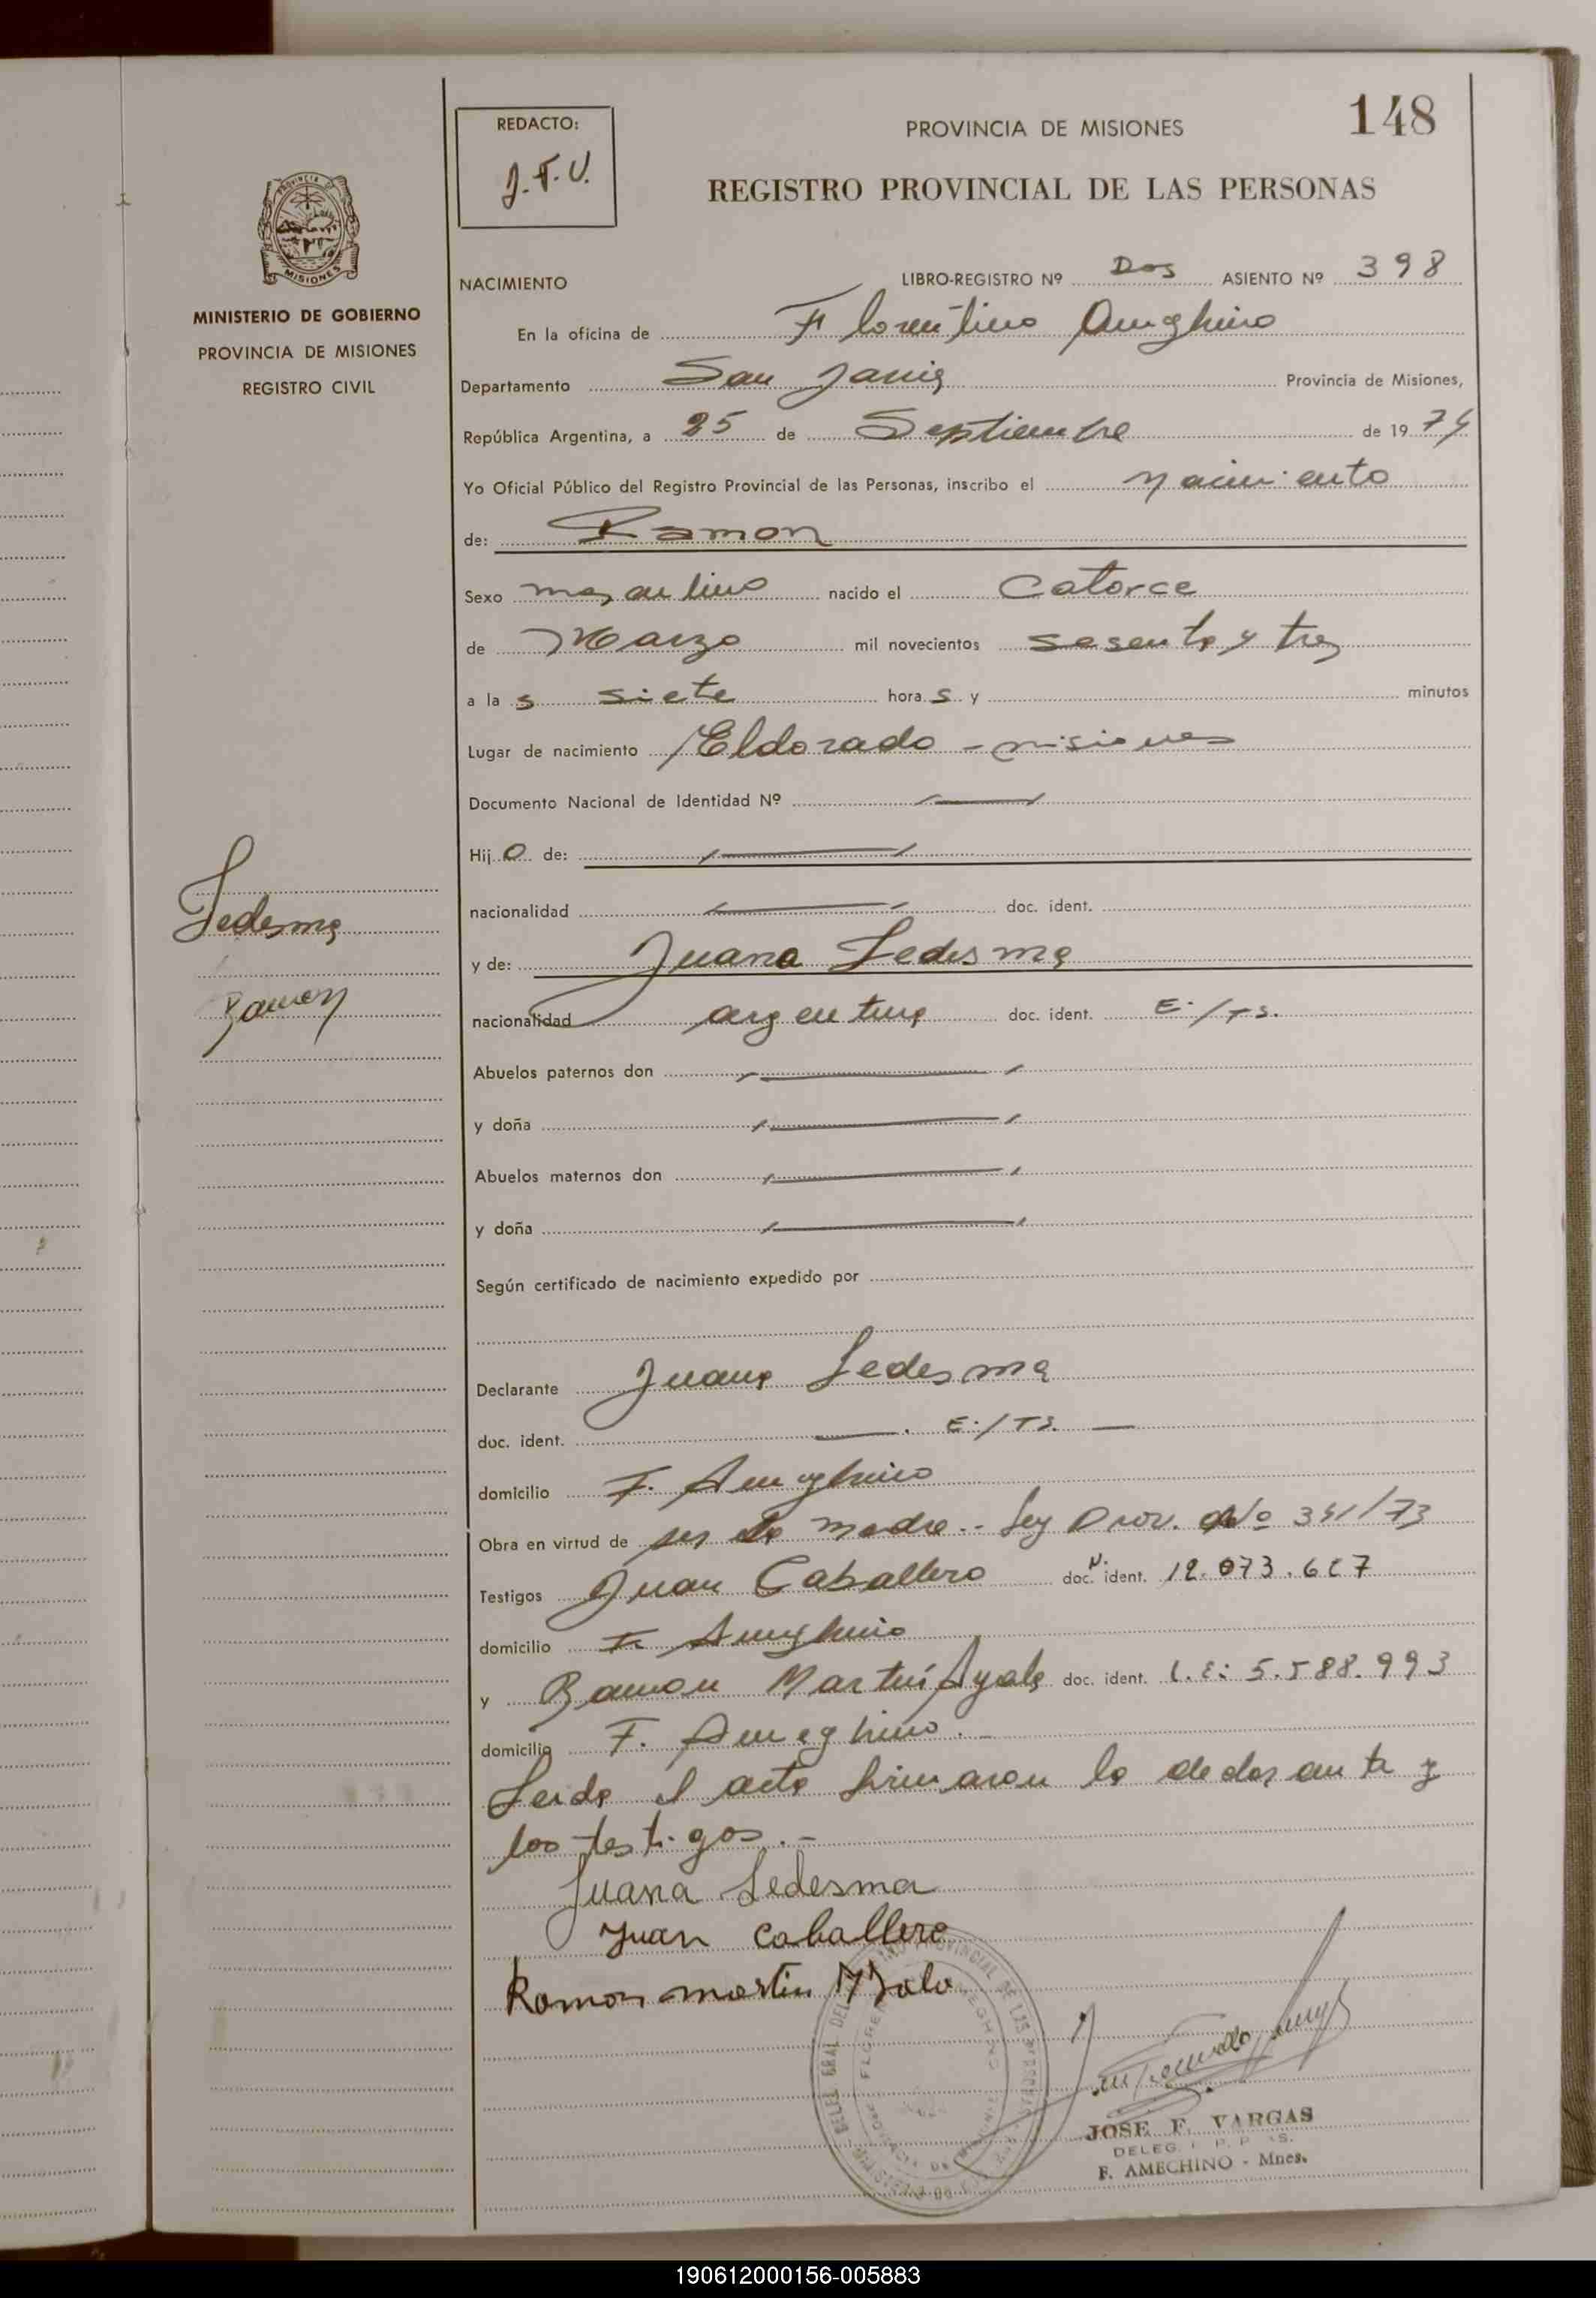 148
REDACTO:
J.F.V.
PROVINCIA DE MISIONES
REGISTRO PROVINCIAL DE LAS PERSONAS
MISIONES
MINISTERIO DE GOBIERNO
PROVINCIA DE MISIONES
REGISTRO CIVIL
NACIMIENTO LIBRO-REGISTRO Nº Dos ASIENTO Nº 398
En la oficina de Florentino Ameghino
Departamento San Javier Provincia de Misiones,
República Argentina, a 25 de Septiembre de 19 74
Yo Oficial Público del Registro Provincial de las Personas, inscribo el nacimiento
de: Ramon
Sexo masculino nacido el Catorce
de Marzo mil novecientos sesenta y tres
a la s siete hora s y minutos
Lugar de nacimiento Eldorado - misiones
Documento Nacional de Identidad Nº
Hij o de:
nacionalidad doc. ident.
Ledesma
y de: Juana Ledesma
Ramon
nacionalidad argentina doc. ident. E:/TS.
Abuelos paternos don
y doña
Abuelos maternos don
y doña
Según certificado de nacimiento expedido por
Declarante Juana Ledesma
doc. ident. E:/TS.
domicilio F. Ameghino
Obra en virtud de ser la madre.- Ley Prov. Nº 341/73
Testigos Juan Caballero doc. N. ident. 12.073.627
domicilio F. Ameghino
y Ramon Martin Ayala doc. ident. L.E: 5.588.993
domicilio F. Ameghino.-
Leida el acta firmaron la declarante y
los testigos.-
Juana Ledesma
Juan Caballero
Ramon martin Ayala
JOSE F. VARGAS
DELEG.
F. AMECHINO - Mnes.
190612000156-005883